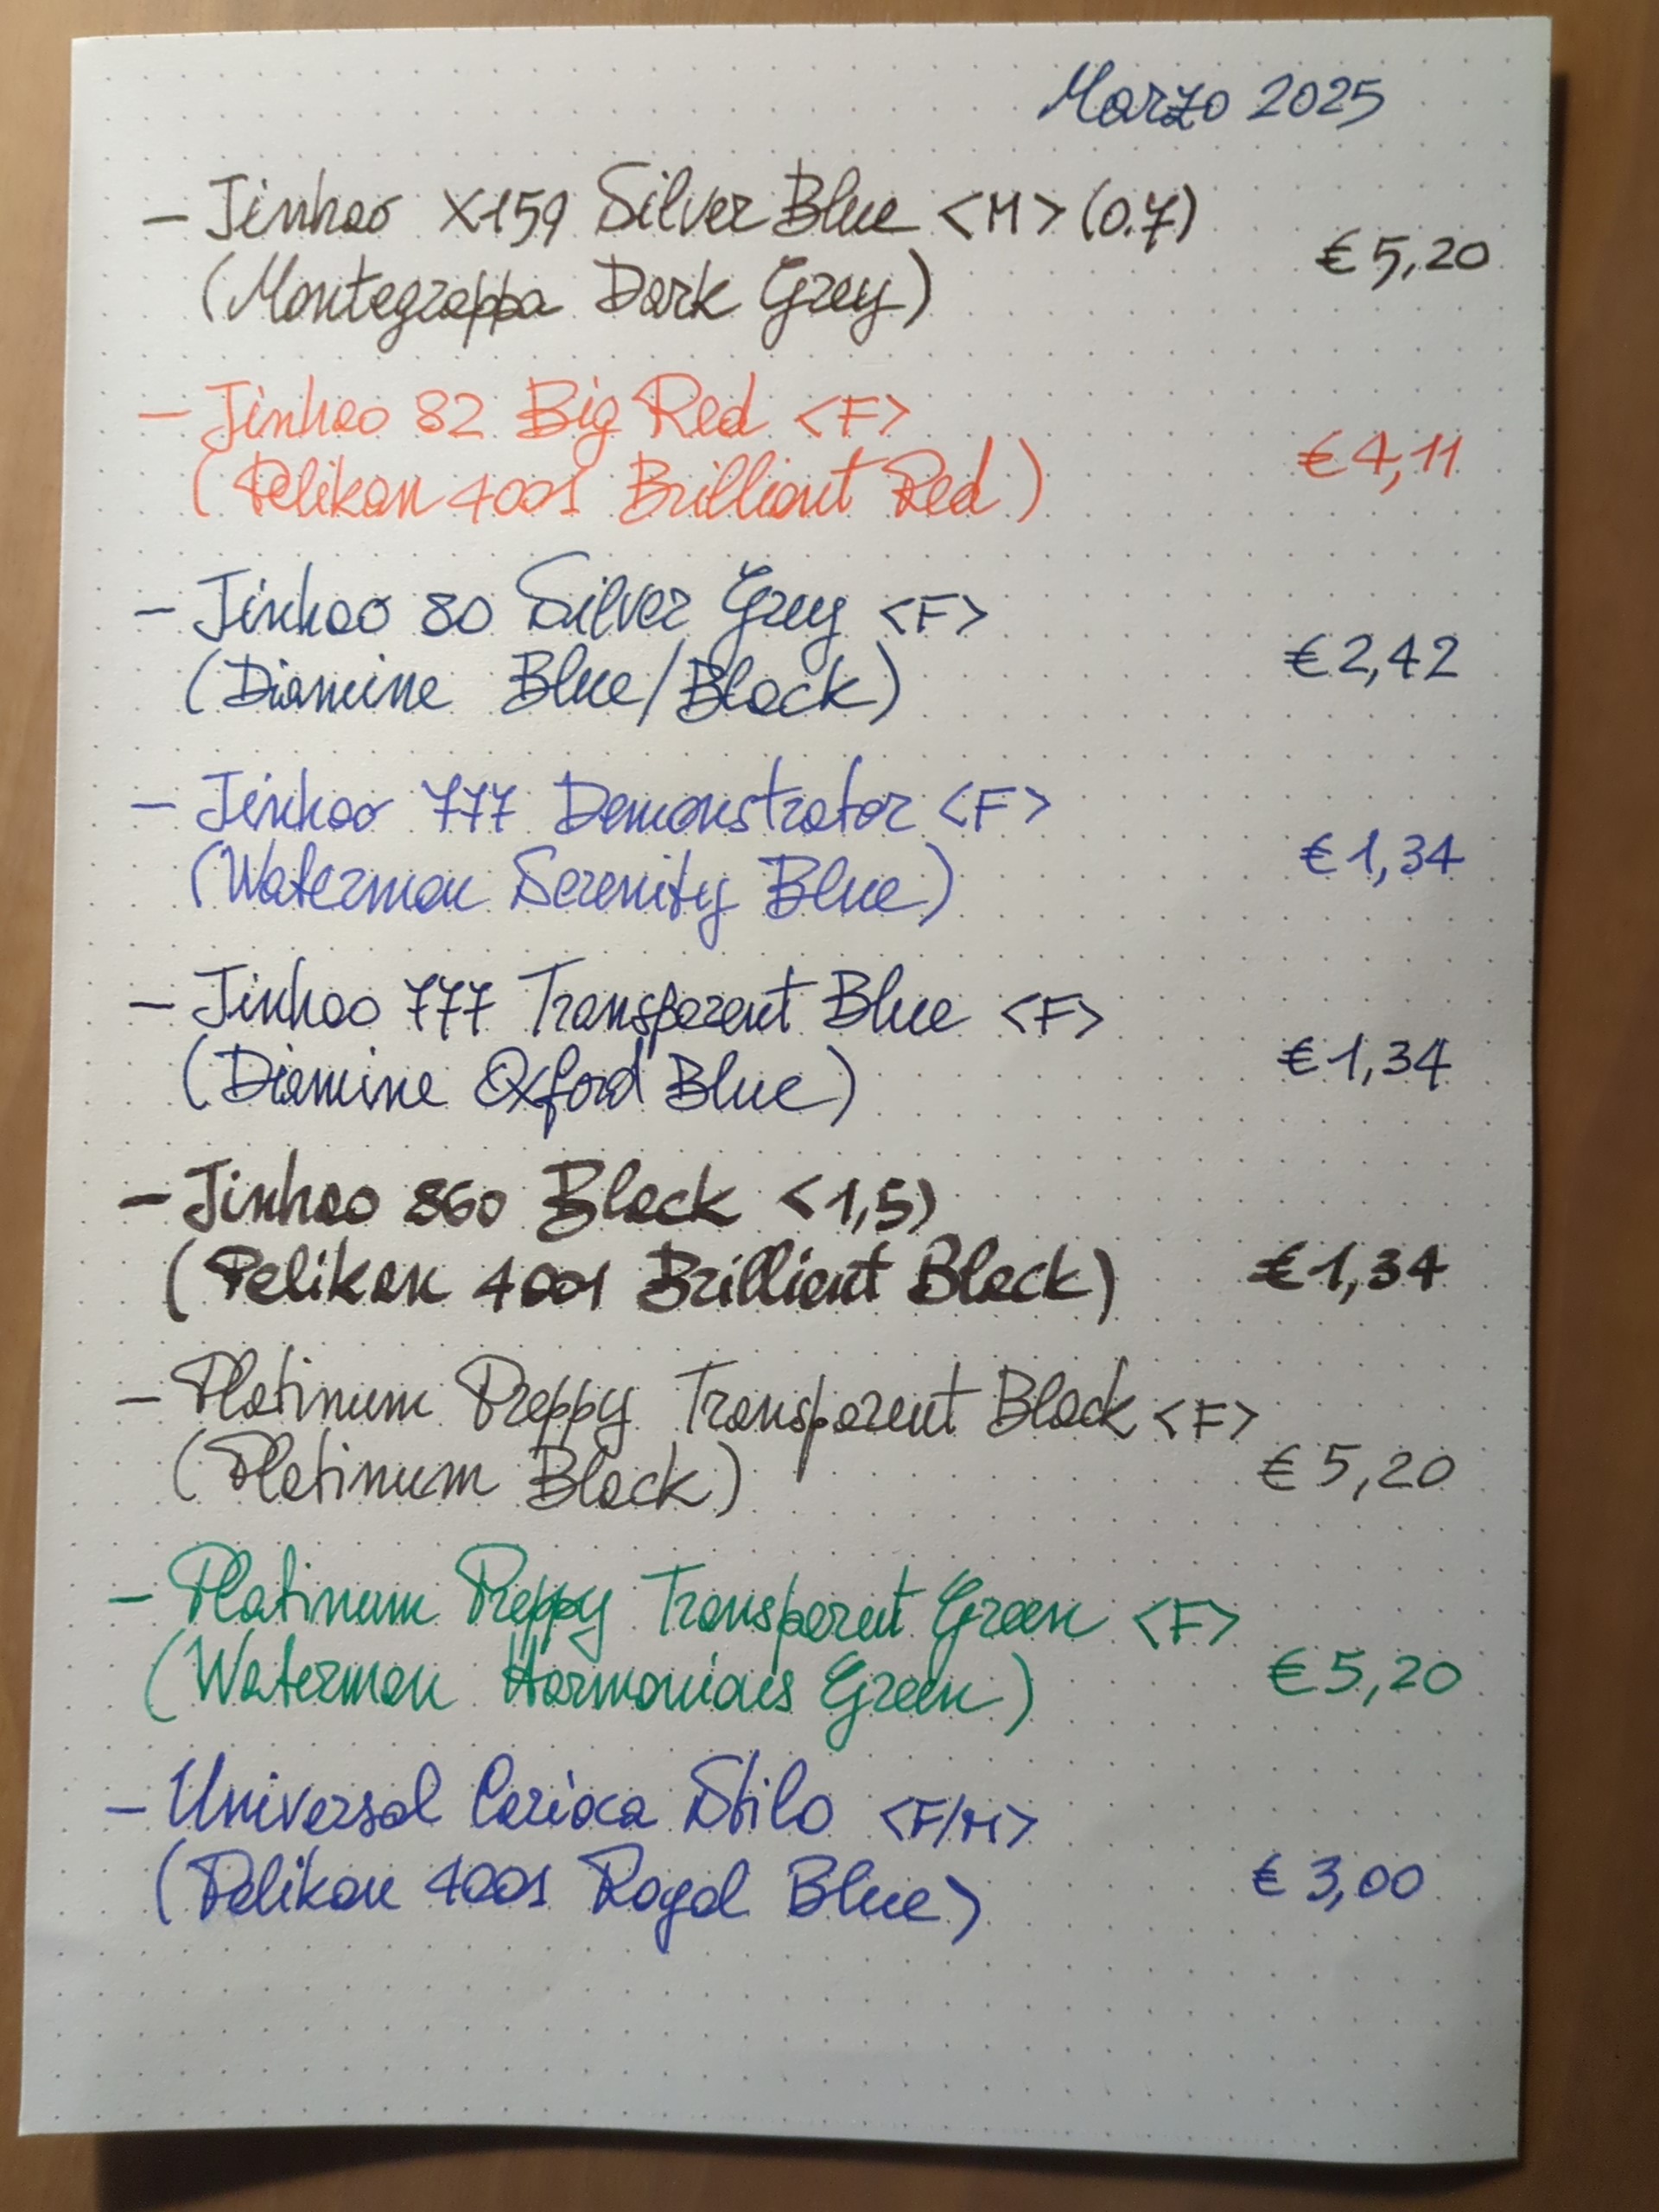 Marzo 2025
- Jinhao X159 Silver Blue <M> (0.7)
€ 5,20
(Montegrappa Dark Grey)
- Jinhao 82 Big Red <F>
€ 4,11
(Pelikan 4001 Brilliant Red)
- Jinhao 80 Silver Grey <F>
€ 2,42
(Diamine Blue/Black)
- Jinhao 777 Demonstrator <F>
€ 1,34
(Waterman Serenity Blue)
- Jinhao 777 Transparent Blue <F>
€ 1,34
(Diamine Oxford Blue)
- Jinhao 860 Black <1,5)
€ 1,34
(Pelikan 4001 Brilliant Black)
- Platinum Preppy Transparent Black <F>
€ 5,20
(Platinum Black)
- Platinum Preppy Transparent Green <F>
€ 5,20
(Waterman Harmonious Green)
- Universal Carioca Stilo <F/M>
€ 3,00
(Pelikan 4001 Royal Blue)